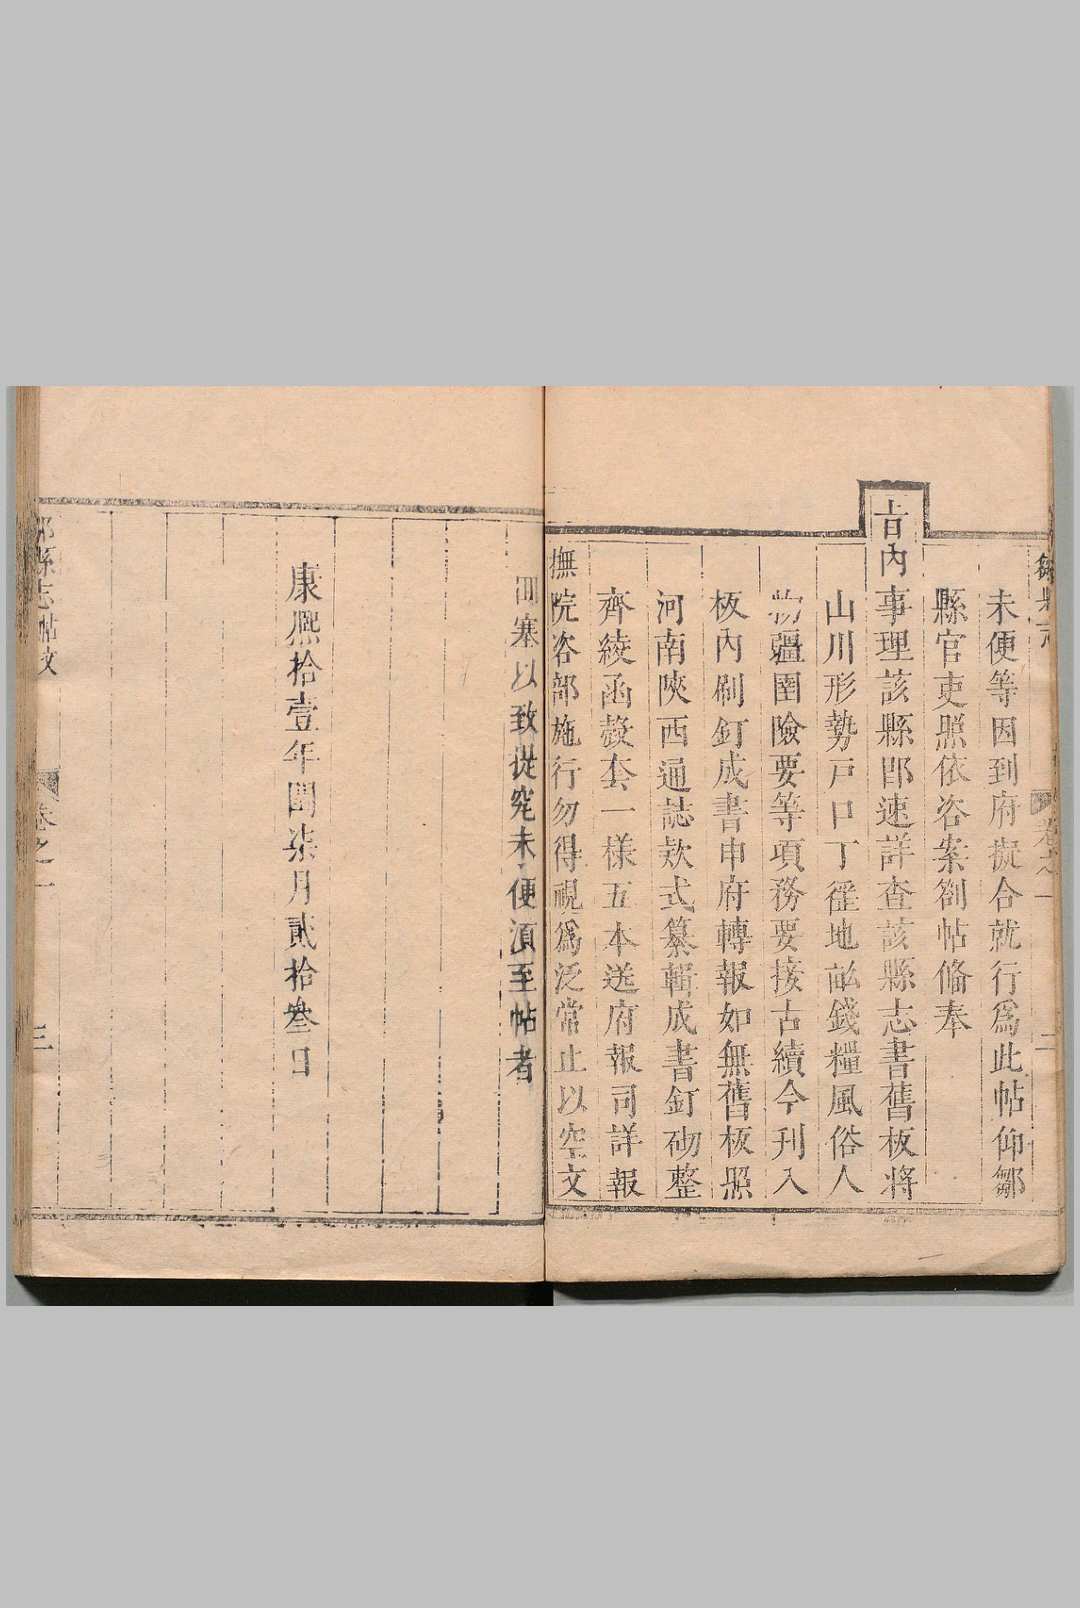 鄒縣志
卷之一
二
未便等因到府擬合就行爲此帖仰鄒
縣官吏照依咨案劄帖備奉
旨內事理該縣卽速詳查該縣志書舊板將
山川形勢戸口丁徭地畝錢糧風俗人
物疆圉險要等項務要接古續今刊入
板內刷釘成書申府轉報如無舊板照
河南陝西通誌欵式纂輯成書釘砌整
齊綾函殼套一樣五本送府報司詳報
撫院咨部施行勿得視爲泛常止以空文
塞以致提究未便湏至帖者
康熈拾壹年閏柒月貳拾叄日
縣志帖文
卷之一
三